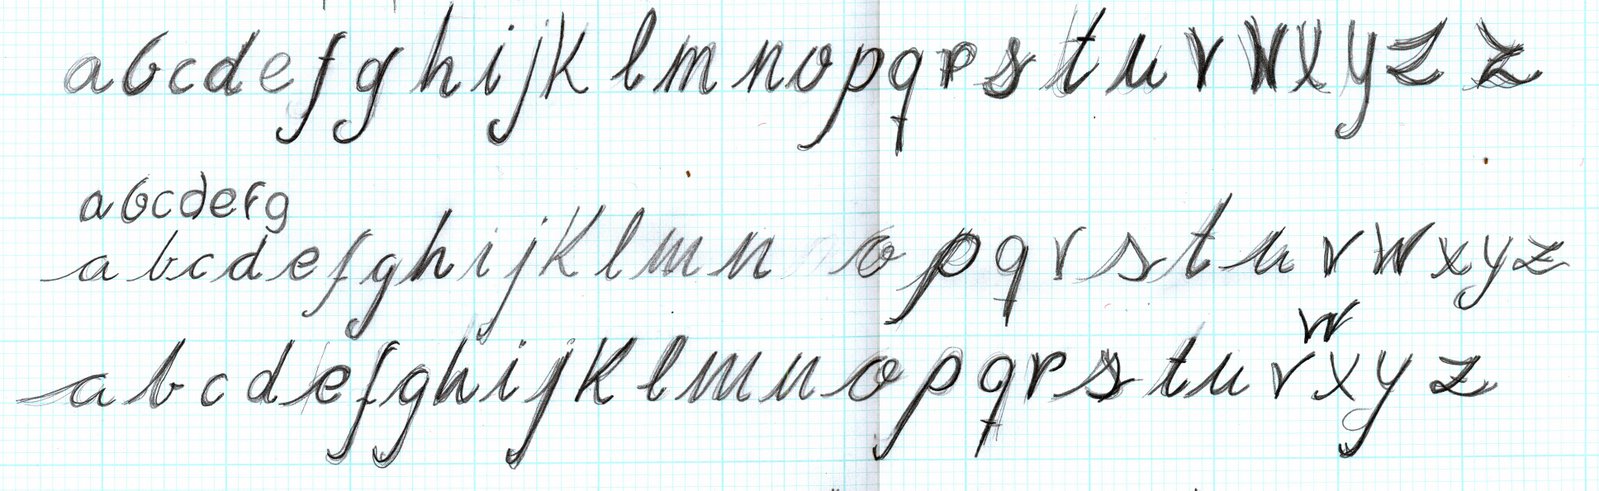 a b c d e f g h i j k l m n o p q r s t u v w x y z z
a b c d e f g
a b c d e f g h i j k l m n o p q r s t u v w x y z
w
a b c d e f g h i j k l m n o p q r s t u v x y z